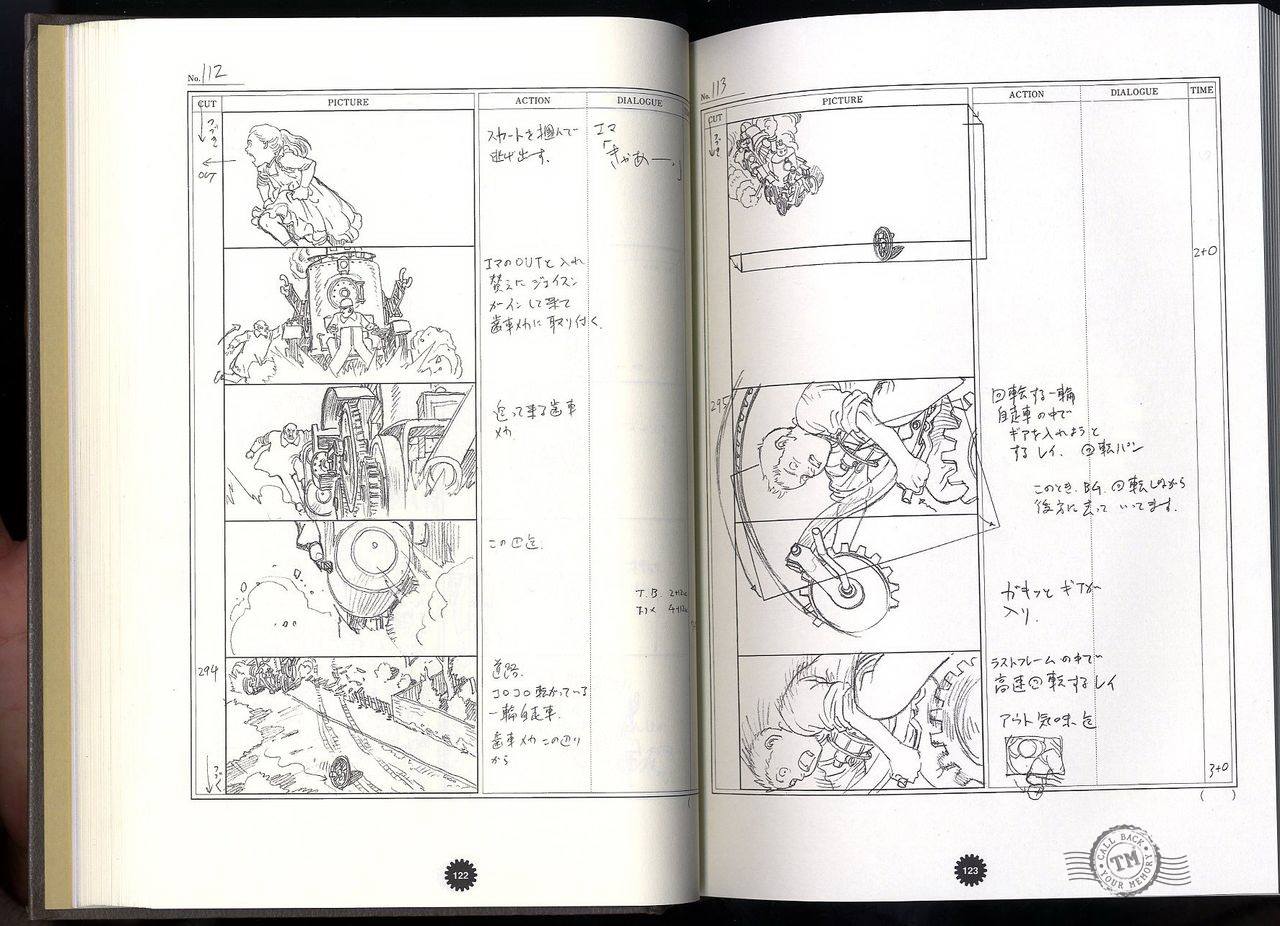 No. 112
CUT
PICTURE
ACTION
DIALOGUE
つづき
OUT
スカートを掴んで
逃げ出す。
エマ
「きゃあー。」
エマのOUTと入れ
替えにジェイスン
がインして来て
歯車メカに取り付く。
迫って来る歯車
メカ
この位迄。
T.B. 2+12K
294
道路。
コロコロ転がっている
一輪自走車.
歯車メカこの辺り
から
つづく
122
No. 113
CUT
PICTURE
ACTION
DIALOGUE
TIME
つづき
2+0
295
回転する一輪
自走車の中で
ギアを入れようと
するレイ. 回転パン
このとき、BG、回転しながら
後方に去っていってます。
ガキッとギアが
入り.
ラストフレームの中で
高速回転するレイ
アウト気味迄
3+0
( )
123
CALL BACK
TM
YOUR MEMORY